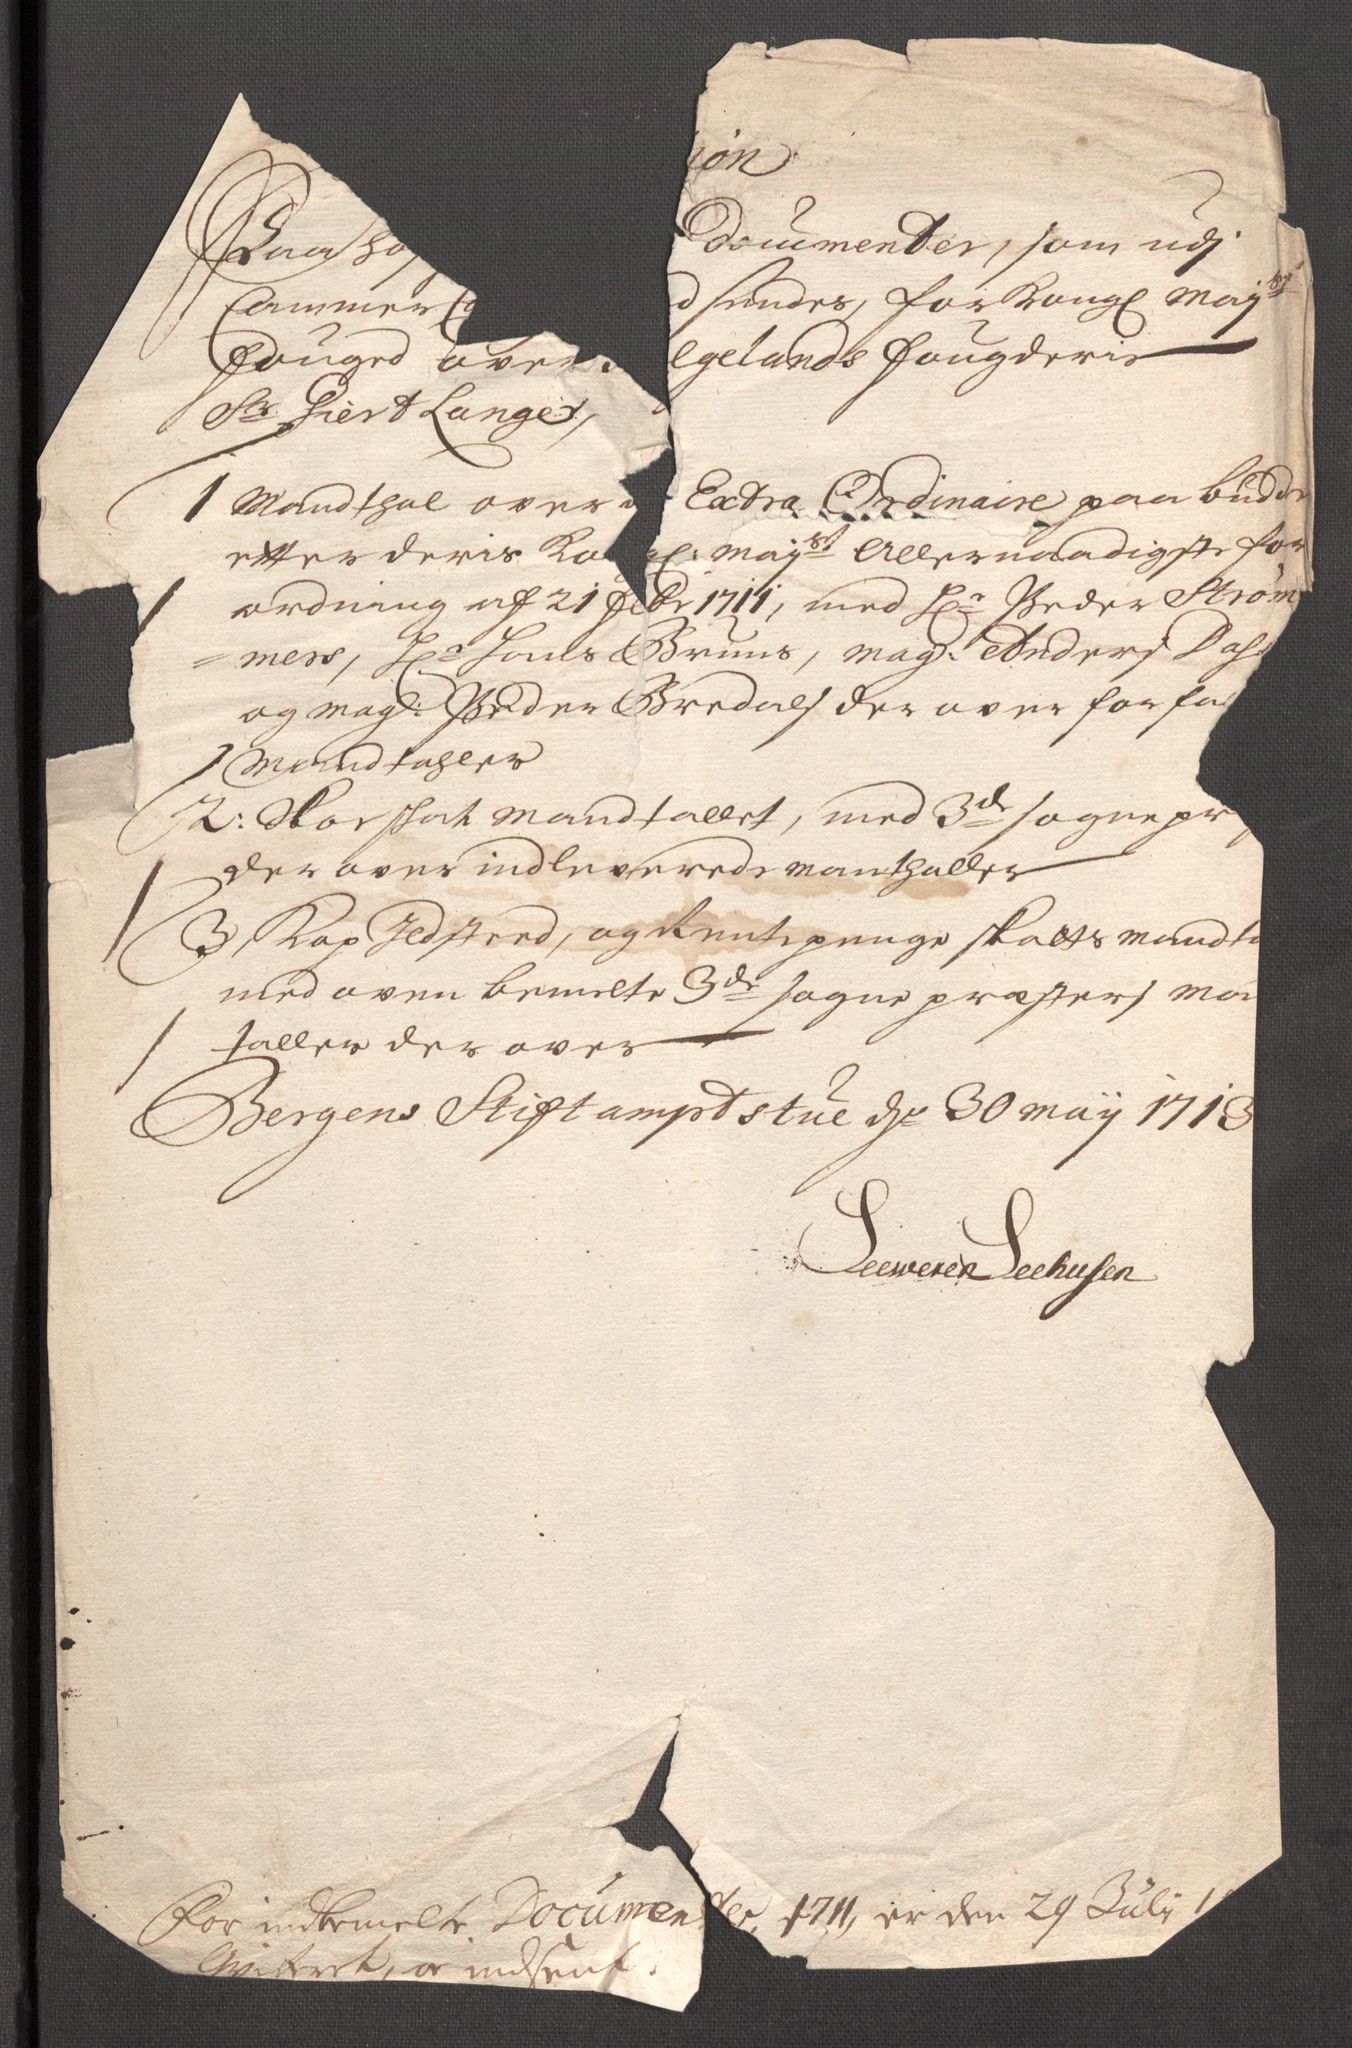 ion
Paa ho Documenter, som udj
Cammer C d sendes, for Kongl Mayst
Fouged over elgelands Fougderie
Sr Siert Langes,
1 Mandthal over Extra Ordinaire paabudde
efter deris Kongl: Mayst Allernaadigste for
1 ordning af 21 Febr 1711, med Hr Peder Strøm
= mers, Hr Hans Bruns, Mag: Anders Dah
og Mag: Peder Bredals der over forfa
1 Mandtahler
2: Skoeskat Mandtallet, med 3de sognepr
der over indleverede Manthaller
3, Kop Ildsted, og Rentepenge skatts Mandta
med oven bemelte 3de sogne præsters Man
1 taller der over
Bergens Stiftamptstue dn 30 Maij 1713
Leeweren Leehusen
For indbemelte Documenter, 1711, er den 29 Julj 1
Qvitteret, og indsent.